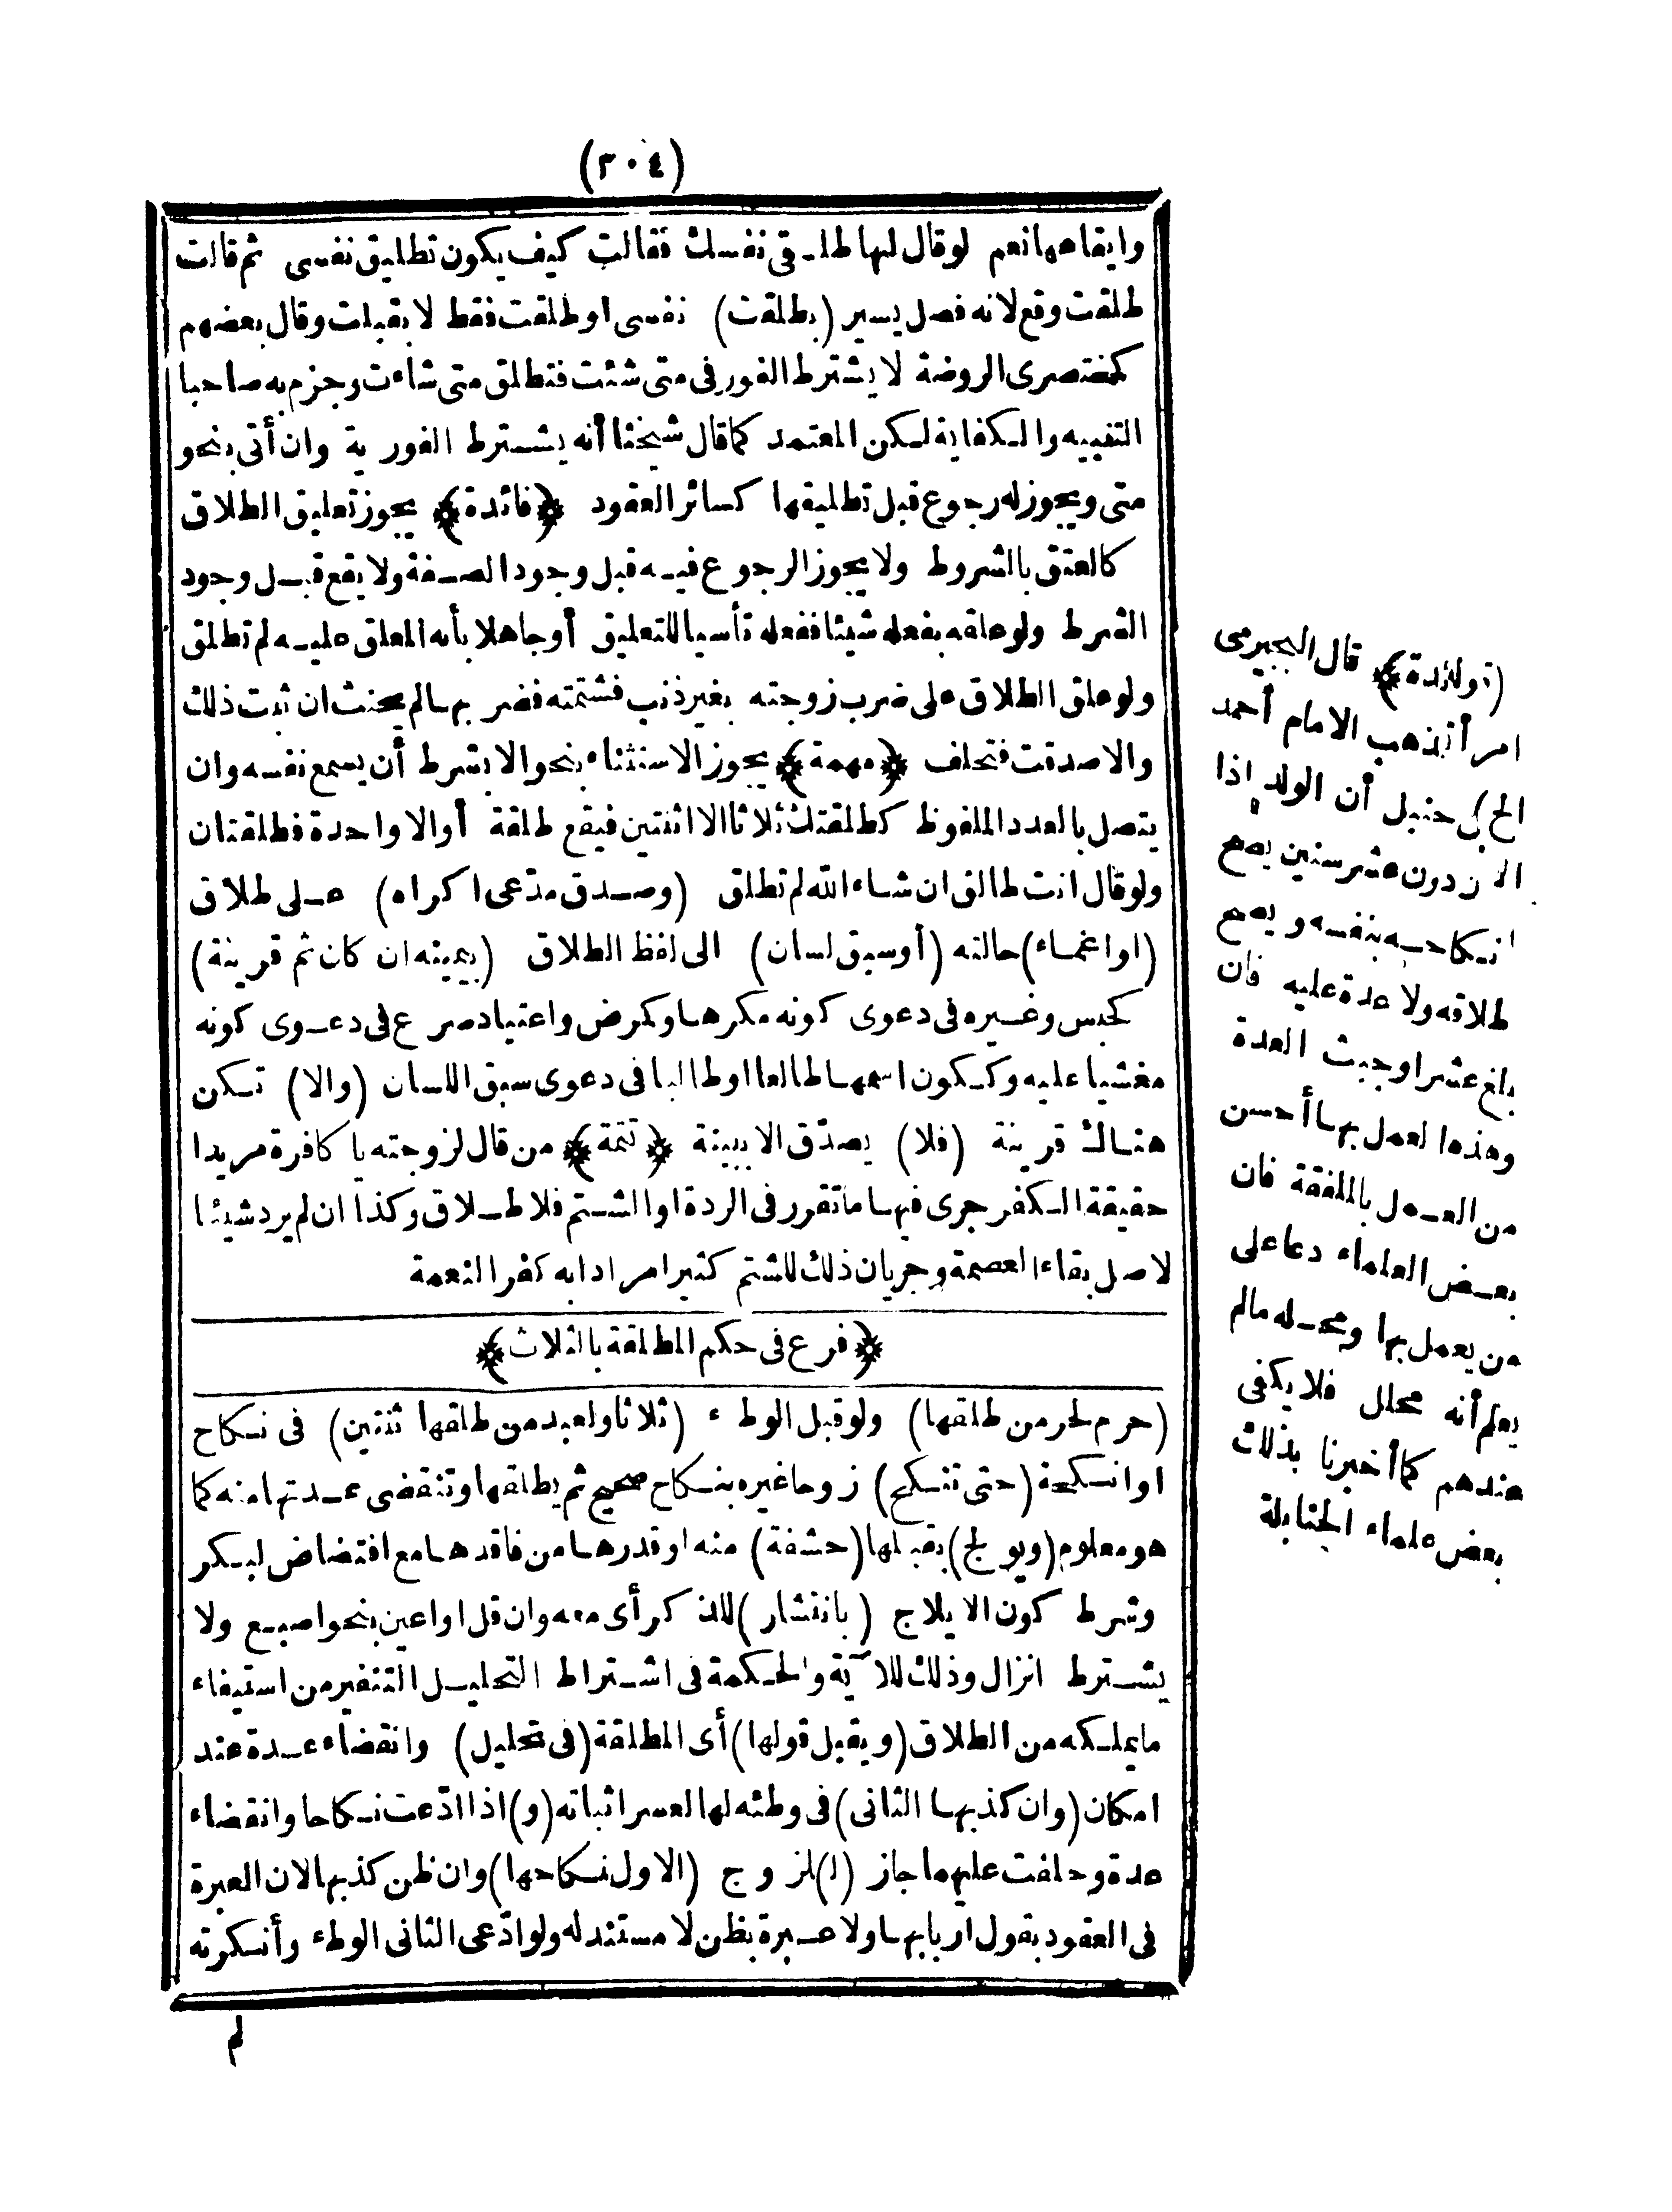 (٣٠٤)
وايقاعها نعم لو قال لها طلقى نفسك فقالت كيف يكون تطليق نفسى ثم قالت
طلقت وقع لانه فصل يسير (بطلقت) نفسى او طلقت فقط لا بقبلت وقال بعضهم
كمختصرى الروضة لا يشترط الفور فى متى شئت فتطلق متى شاءت وجزم به صاحبا
التنبيه والكفاية لكن المعتمد كما قال شيخنا أنه يشترط الفورية وان أتى بنحو
متى ويجوز له رجوع قبل تطليقها كسائر العقود ﴿فائدة﴾ يجوز تعليق الطلاق
كالعتق بالشروط ولا يجوز الرجوع فيه قبل وجود الصفة ولا يقع قبل وجود
الشرط ولو علقه بفعله شيئا ففعله ناسيا للتعليق أو جاهلا بأنه المعلق عليه لم تطلق
ولو علق الطلاق على ضرب زوجته بغير ذنب فشتمته فضربها لم يحنث ان ثبت ذلك
والا صدقت فتحلف ﴿مهمة﴾ يجوز الاستثناء بنحو الا بشرط أن يسمع نفسه وان
يتصل بالعدد الملفوظ كطلقتك ثلاثا الا اثنتين فيقع طلقة أو الا واحدة فطلقتان
ولو قال انت طالق ان شاء الله لم تطلق (وصدق مدّعى اكراه) على طلاق
(او اغماء) حالته (أو سبق لسان) الى لفظ الطلاق (بيمينه ان كان ثم قرينة)
كحبس وغيره فى دعوى كونه مكرها وكمرض واعتياد صرع فى دعوى كونه
مغشيا عليه وككون اسمها طالعا او طالبا فى دعوى سبق اللسان (والا) تكن
هناك قرينة (فلا) يصدّق الا ببينة ﴿تتمة﴾ من قال لزوجته يا كافرة مريدا
حقيقة الكفر جرى فيها ما تقرر فى الردة او الشتم فلا طلاق وكذا ان لم يرد شيئا
لاصل بقاء العصمة وجريان ذلك للشتم كثيرا مرادا به كفر النعمة
﴿فرع فى حكم المطلقة بالثلاث﴾
(حرم لحر من طلقها) ولو قبل الوطء (ثلاثا ولعبد من طلقها ثنتين) فى نكاح
او انكحة (حتى تنكح) زوجا غيره بنكاح صحيح ثم يطلقها وتنقضى عدتها منه كما
هو معلوم (ويولج) بقبلها (حشفة) منه او قدرها من فاقدها مع افتضاض لبكر
وشرط كون الايلاج (بانتشار) للذكر أى معه وان قل او اعين بنحو اصبع ولا
يشترط انزال وذلك للآية والحكمة فى اشتراط التحليل التنفير من استيفاء
ما يملكه من الطلاق (ويقبل قولها) أى المطلقة (فى تحليل) وانقضاء عدة عند
امكان (وان كذبها الثانى) فى وطئه لها لعسر اثباته (و) اذا ادّعت نكاحا وانقضاء
عدة وحلفت عليهما جاز (ل)لزوج (الاول نكاحها) وان ظن كذبها لان العبرة
فى العقود بقول اربابها ولا عبرة بظن لا مستند له ولو ادّعى الثانى الوطء وأنكرته
لم
قال البجيرمى
الامام أحمد
حنبل أن الولد اذا
دون عشر سنين يصح
نكاحه بنفسه ويصح
طلاقه ولا عدة عليه فان
بلغ عشرا وجبت العدة
وهذه العمل بها أحسن
من العمل بالملفقة فان
بعض العلماء دعا على
من يعمل بها ومحله ما لم
يعلم أنه محلل فلا يكفى
عندهم كما أخبرنا بذلك
بعض علماء الحنابلة